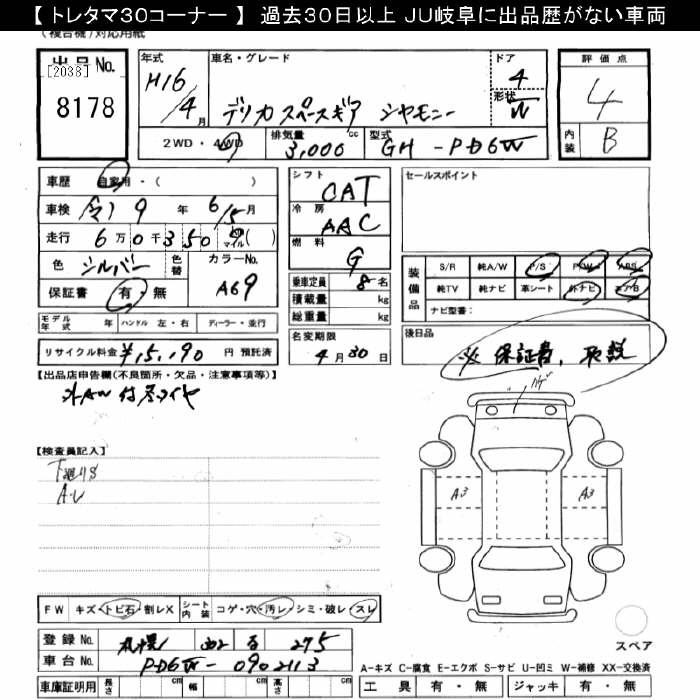 【 トレタマ30コーナー 】 過去30日以上 JU岐阜に出品歴がない車両
(複合機)対応用紙
出品No. [2038] 8178
年式 H16/4月
車名・グレード デリカ スペースギア シャモニー
ドア 4
形状 W
2WD・4WD
排気量 3,000 cc
型式 GH - PD6W
評価点 4
内装 B
車歴 自家用・( )
車検 令) 9年 6/5月
走行 6万0千350 マイル( )
色 シルバー 色替
カラーNo. A69
保証書 有・無
モデル年式 年 ハンドル 左・右 ディーラー・並行
リサイクル料金 ¥15,190 円 預託済
シフト CAT
冷房 AAC
燃料 G
乗車定員 8名
積載量 kg
総重量 kg
名変期限 4月30日
セールスポイント
装備品 S/R 純A/W P/S P/W ABS
純TV 純ナビ 革シート 外ナビ エアB
ナビ型番:
後日品
保証書、取説
【出品店申告欄(不良箇所・欠品・注意事項等)】
外AW 付
【検査員記入】
下廻りS
A3 A3
FW キズ・トビ石・割レX シート内装 コゲ・穴・汚レ・シミ・破レ・スレ
登録No. 札幌 302 古 275
車台No. PD6W-0902113
車庫証明用 長さ cm 幅 cm 高さ cm
スペア
A-キズ C-腐食 E-エクボ S-サビ U-凹ミ W-補修 XX-交換済
工具 有・無 ジャッキ 有・無